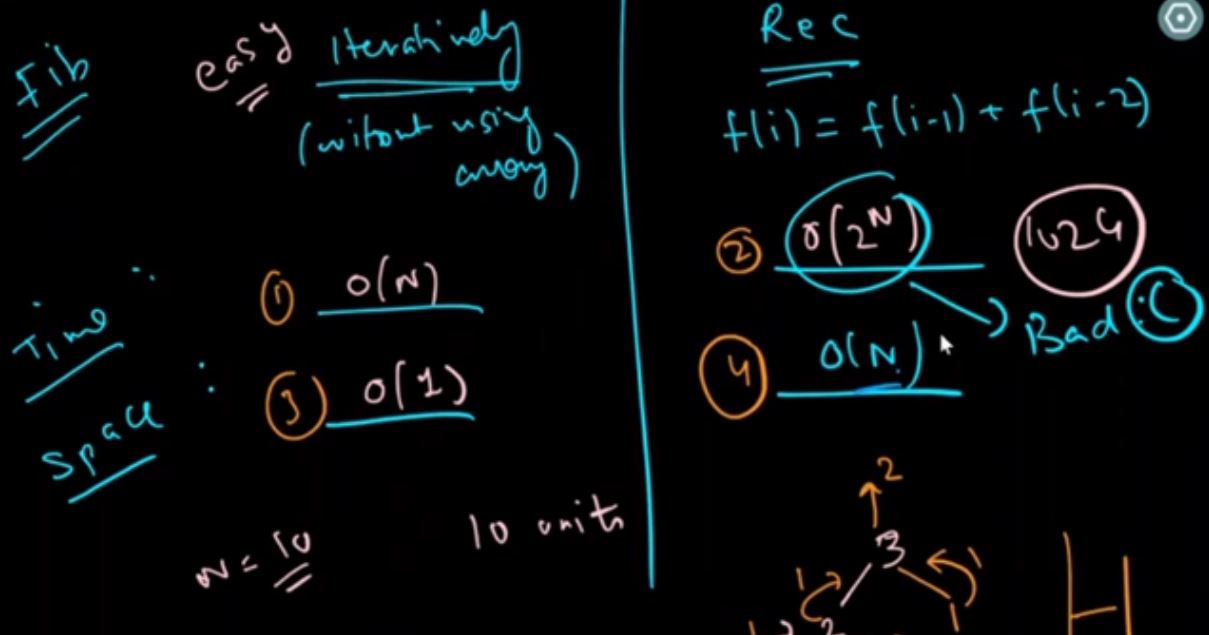 Fib
easy Iteratively
(without using
array)
Time :
① O(N)
Space :
③ O(1)
N = 10
10 units
Rec
f(i) = f(i-1) + f(i-2)
② O(2^N) 1024
Bad :(
④ O(N)
2
3
1 1
2 1